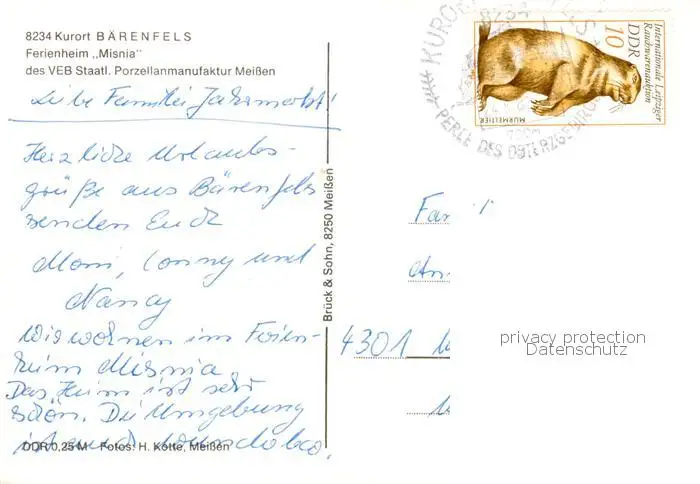 8234 Kurort BÄRENFELS
Ferienheim „Misnia"
des VEB Staatl. Porzellanmanufaktur Meißen
Liebe Familie Jahrmarkt!
Herzliche Urlaubs-
grüße aus Bärenfels
senden Euch
Moni, Conny und
Nancy
Wir wohnen im Ferien-
heim Misnia.
Das Heim ist sehr
schön. Die Umgebung
ist auch wunderbar.
DDR 0,25 M Fotos: H. Kotte, Meißen
Brück & Sohn, 8250 Meißen
Internationale Leipziger
Rauchwarenauktion
DDR
10
MURMELTIER
KURORT
8234
PERLE DES OSTERZGEBIRGES
Fam
4301
privacy protection
Datenschutz